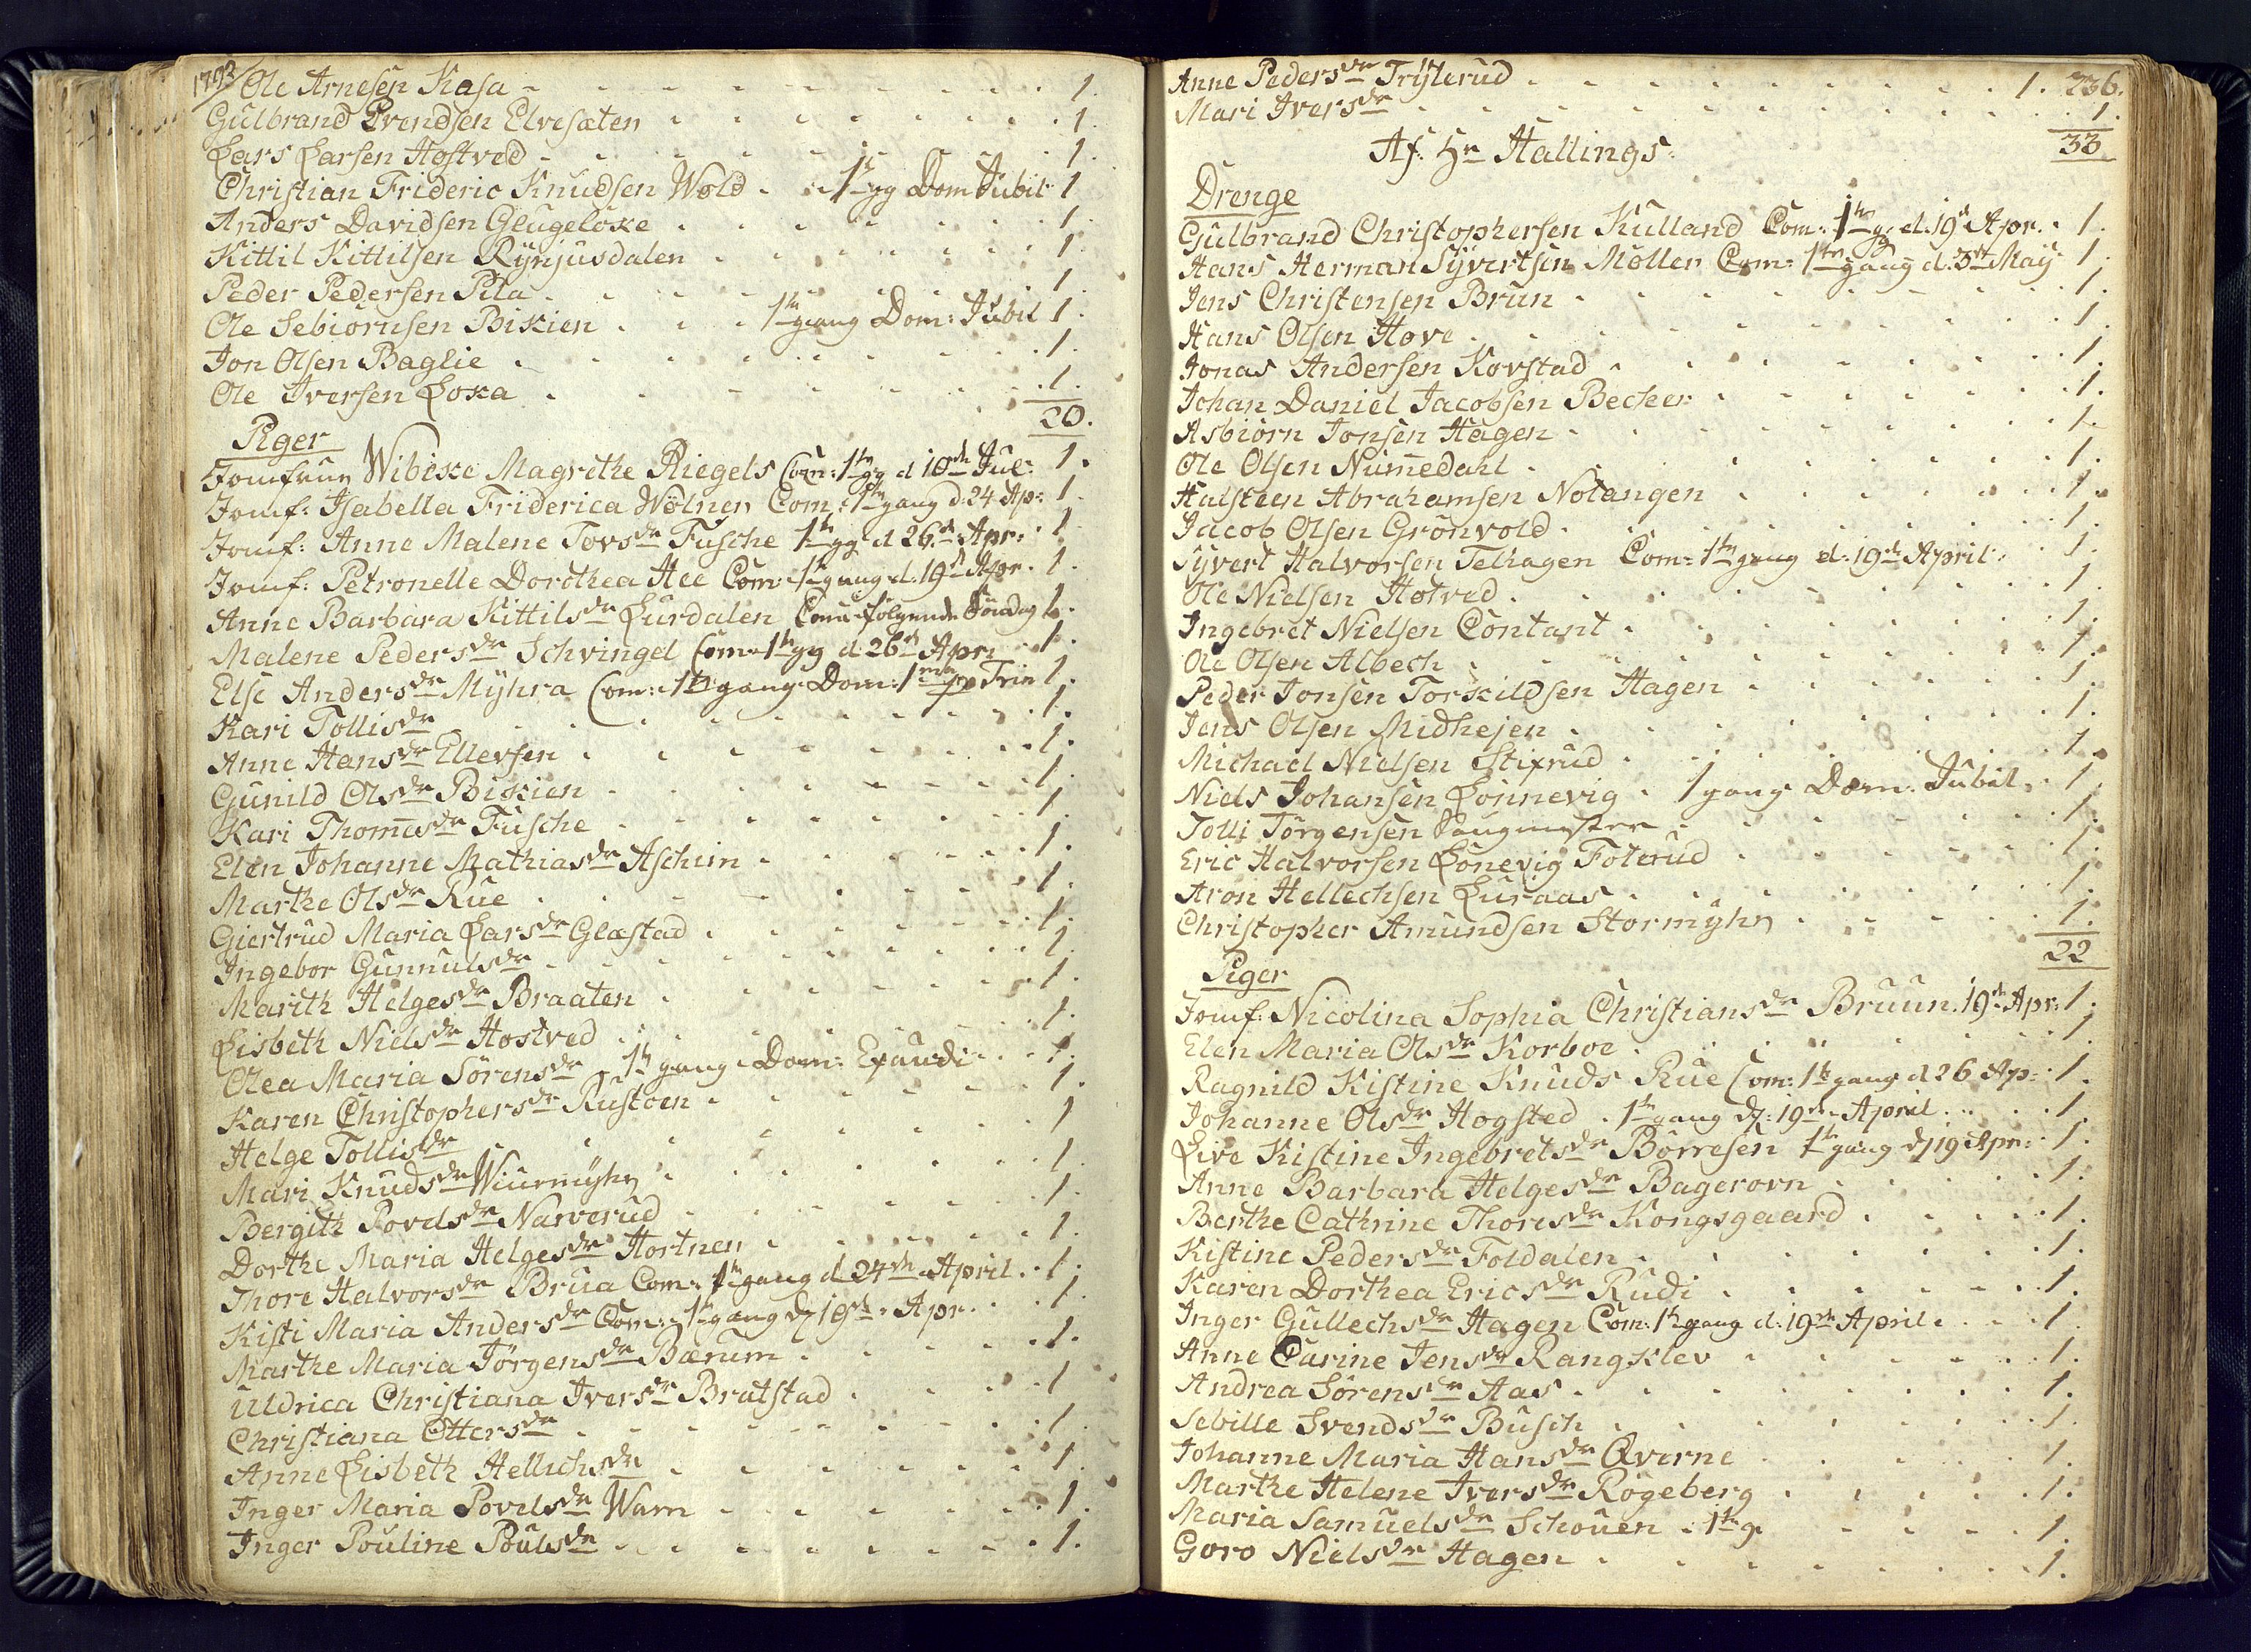 1792/ Ole Arnesen Kasa - 1.
Gulbrand Evendsen Elvesæten 1.
Lars Larsen Hostved - 1.
Christian Frideric Knudsen Wold. 1ste gg Dom Jubil: 1
Anders Davidsen Glugeloke 1.
Kittil Kittilsen Rÿnjusdalen 1.
Peder Pedersen Pila. 1.
Ole Sebiornsen Bikien 1ste gang Dom: Jubil 1.
Jon Olsen Baglie 1.
Ole Iversen Loka 1.
20.
Piger
Jomfrue Wibeke Magrethe Riegels Com: 1ste gg d 10de Jul: 1.
Jomf: Isabella Friderica Wölner Com: 1ste gang d: 24 Ap: 1.
Jomf: Anne Malene Torsdr Fusche 1ste gg d 26de Apr: 1.
Jomf: Petronelle Dorothea Hee Com: 1ste gang d: 19de Apr. 1.
Anne Barbara Kittilsdr Lurdalen Com: følgende Søndag 1.
Malene Pedersdr Schvingel Com: 1ste gg d: 26de Apr: 1.
Else Andersdr Mÿhra Com: 1ste gang Dom: 1ma p Trin 1.
Kari Tollisdr 1.
Anne Hansdr Ellevsen 1.
Gunild Olsdr Bikien 1.
Kari Thomasdr Fusche 1.
Elen Johanne Mathiasdr Aschim 1.
Marthe Olsdr Rue 1.
Giertrud Maria Larsdr Glæstad 1.
Ingebor Gunnulsdr 1.
Marith Helgesdr Braaten 1.
Lisbeth Nielsdr Hostved 1.
Olea Maria Sörensdr 1ste gang Dom: Exaudi 1.
Karen Christophersdr Rustoen 1.
Helge Tollisdr 1
Mari Knudsdr Wiuermÿhr 1.
Bergith Povelsdr Narverud 1.
Dorthe Maria Helgesdr Hortnen 1.
Thore Halvorsdr Brua Com: 1ste gang d 24de April 1.
Kisti Maria Andersdr Com: 1ste gang d 19de Apr. 1.
Marthe Maria Jörgensdr Bærum 1.
Uldrica Christiana Iversdr Bratstad 1.
Christiana Ottersdr 1.
Anne Lisbeth Hellichsdr 1.
Inger Maria Povelsdr Wam 1.
Inger Pouline Poulsdr 1.
Anne Pedersdr Trÿterud 1. 236.
Mari Iversdr 1.
33
Af Hr Hallings:
Drenge
Gulbrand Christophersen Kulland Com: 1ste g. d. 19de Apr. 1.
Hans Herman Sÿvertsen Möller Com: 1ste gang d. 3de Maÿ 1.
Jens Christensen Brun 1.
Hans Olsen Hove 1.
Jonas Andersen Korstad 1.
Johan Daniel Jacobsen Becher 1.
Asbiörn Jonsen Hagen 1.
Ole Olsen Numedahl 1.
Halsteen Abrahamsen Notangen 1.
Jacob Olsen Grönvold 1.
Sÿvert Halvorsen Telhagen Com: 1ste gang d: 19de April: 1.
Ole Nielsen Hotved 1.
Ingebret Nielsen Contant 1.
Ole Olsen Albech 1.
Peder Jonsen Torkildsen Hagen 1.
Jens Olsen Midhejen 1.
Michael Nielsen Stixrud 1.
Niels Johansen Lönnevig 1 gang Dom. Jubil. 1.
Tolli Törgensen Saugmester 1.
Eric Halvorsen Lönevig Foterud 1.
Aron Hellechsen Luraas 1.
Christopher Amundsen Stormÿhr 1.
22
Piger
Jomf: Nicolina Sophia Christiansdr Bruun. 19de Apr: 1.
Elen Maria Olsdr Korboe 1.
Ragnild Kistine Knuds Rue Com: 1ste gang d 26 Ap: 1.
Johanne Olsdr Hogsted 1ste gang d: 19de April 1.
Live Kistine Ingebretsdr Börresen 1ste gang d 19 Apr: 1.
Anne Barbara Helgesdr Bagerovn 1.
Berthe Cathrine Thoresdr Kongsgaard 1.
Kistine Pedersdr Foldalen 1.
Karen Dorthea Ericsdr Rudi 1.
Inger Gullechsdr Hagen Com: 1ste gang d: 19de April 1.
Anne Carine Jensdr Rangklev 1.
Andrea Sörensdr Aas 1.
Sebille Svendsdr Busch 1.
Johanne Maria Hansdr Qverne 1.
Marthe Helene Iversdr Rogeberg 1.
Maria Samuelsdr Schouen 1ste g. 1.
Goro Nielsdr Hagen 1.